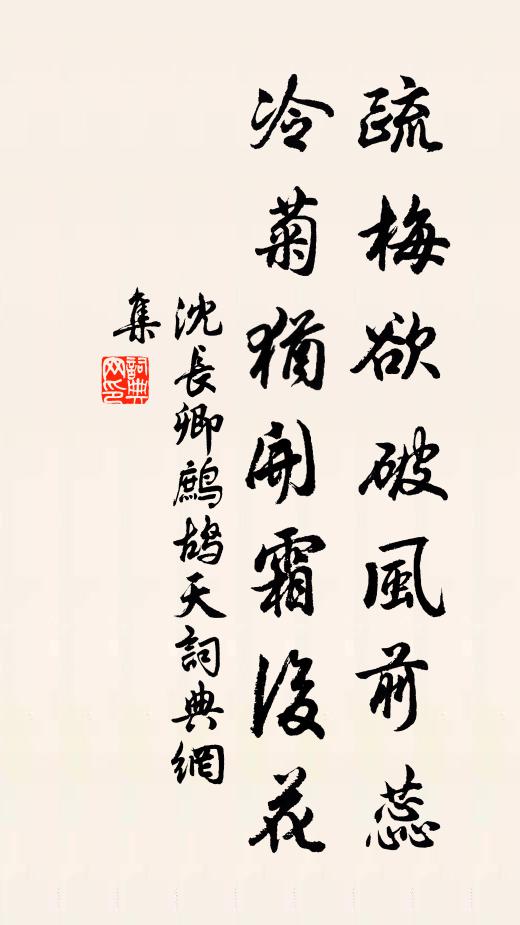 疏梅欲破風前蕊
冷菊猶開霜後花
沈長卿鷓鴣天詞典網
集
詞典網印